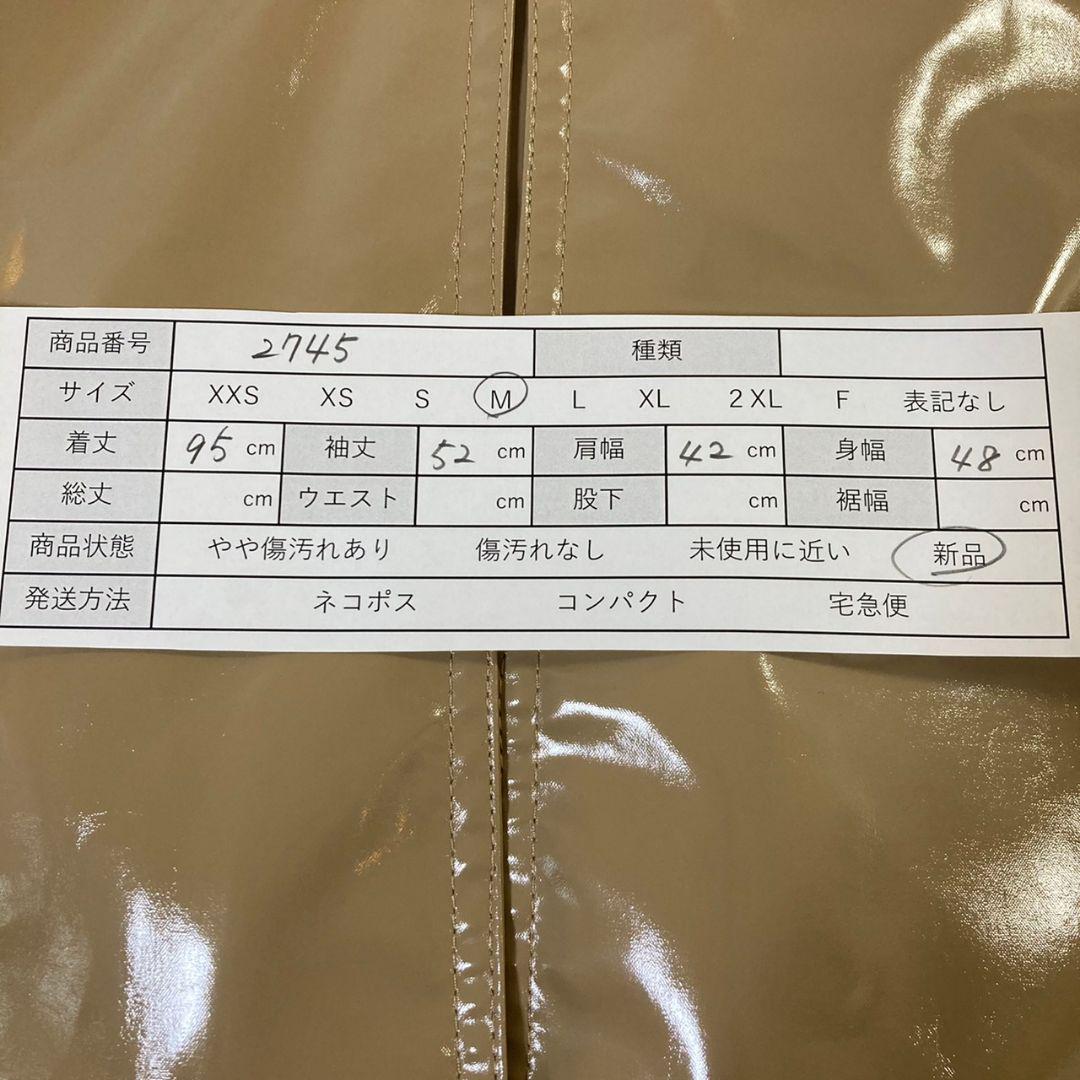 商品番号 2745 種類
サイズ XXS XS S M L XL 2XL F 表記なし
着丈 95 cm 袖丈 52 cm 肩幅 42 cm 身幅 48 cm
総丈 cm ウエスト cm 股下 cm 裾幅 cm
商品状態 やや傷汚れあり 傷汚れなし 未使用に近い 新品
発送方法 ネコポス コンパクト 宅急便